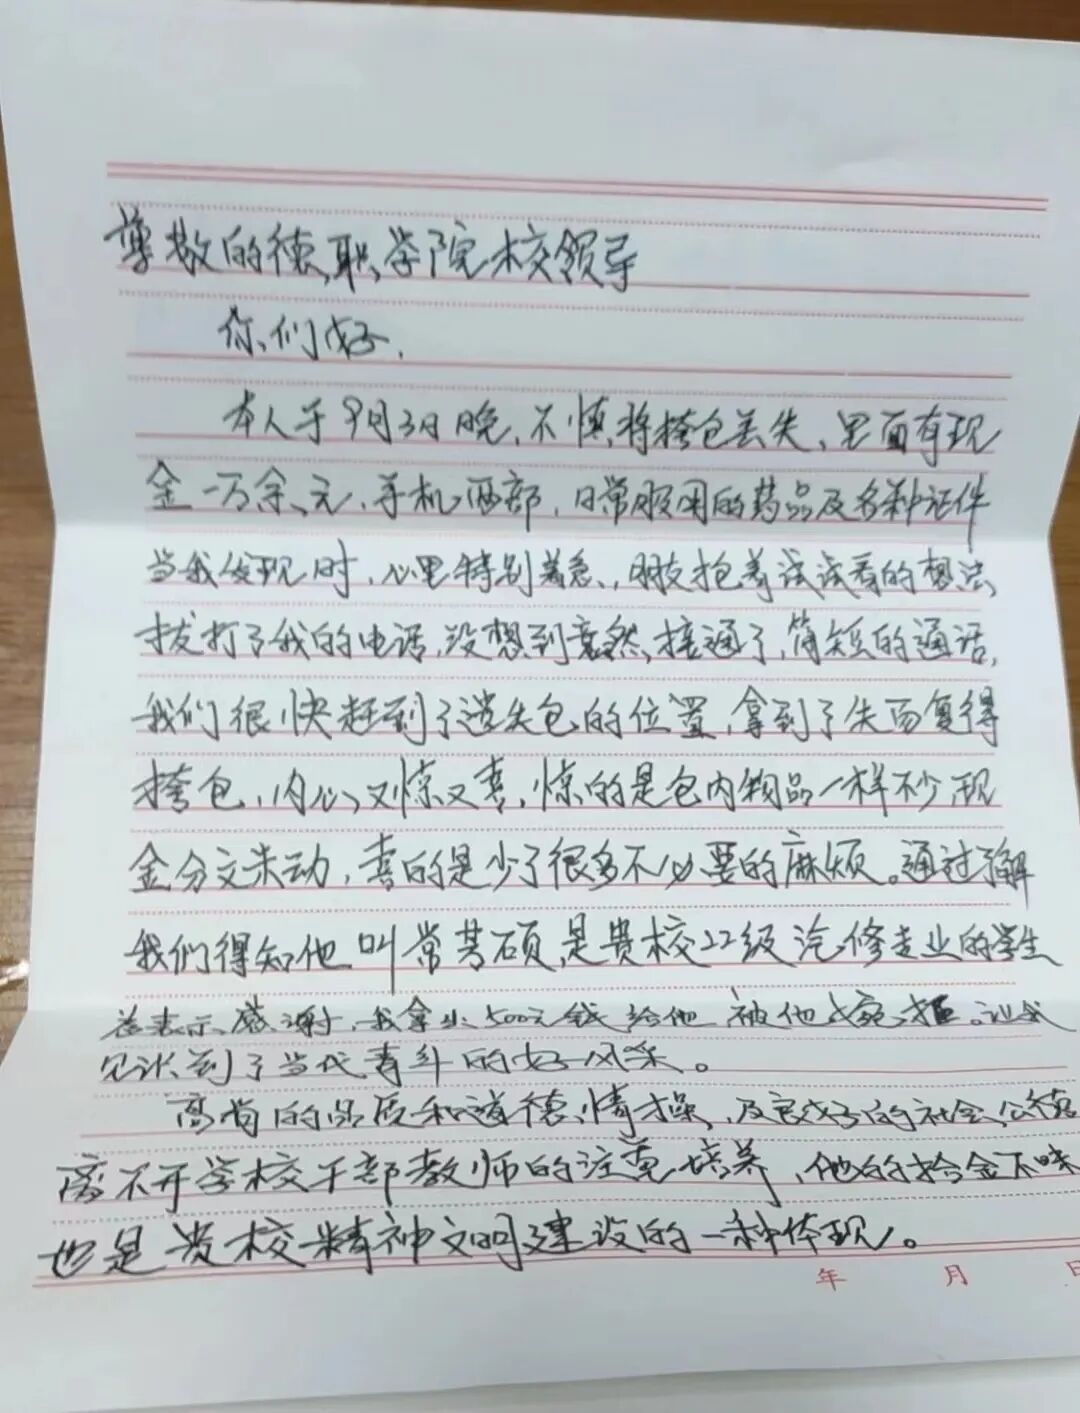 尊敬的德职学院校领导
你们好.
本人于9月3日晚,不慎将挎包丢失,里面有现
金一万余元,手机两部,日常服用的药品及各种证件
当我发现时,心里特别着急,朋友抱着试试看的想法
拔打了我的电话,没想到竟然接通了,简短的通话,
我们很快赶到了遗失包的位置,拿到了失而复得
挎包,内心又惊又喜,惊的是包内物品一样不少,现
金分文未动,喜的是少了很多不必要的麻烦。通过了解
我们得知他叫常其硕,是贵校22级汽修专业的学生
为表示感谢,我拿出500元钱给他被他婉拒。让我
见识到了当代青年的好风采。
高尚的品质和道德情操,及良好的社会公德
离不开学校干部教师的注重培养,他的拾金不昧
也是贵校精神文明建设的一种体现。
年 月 日